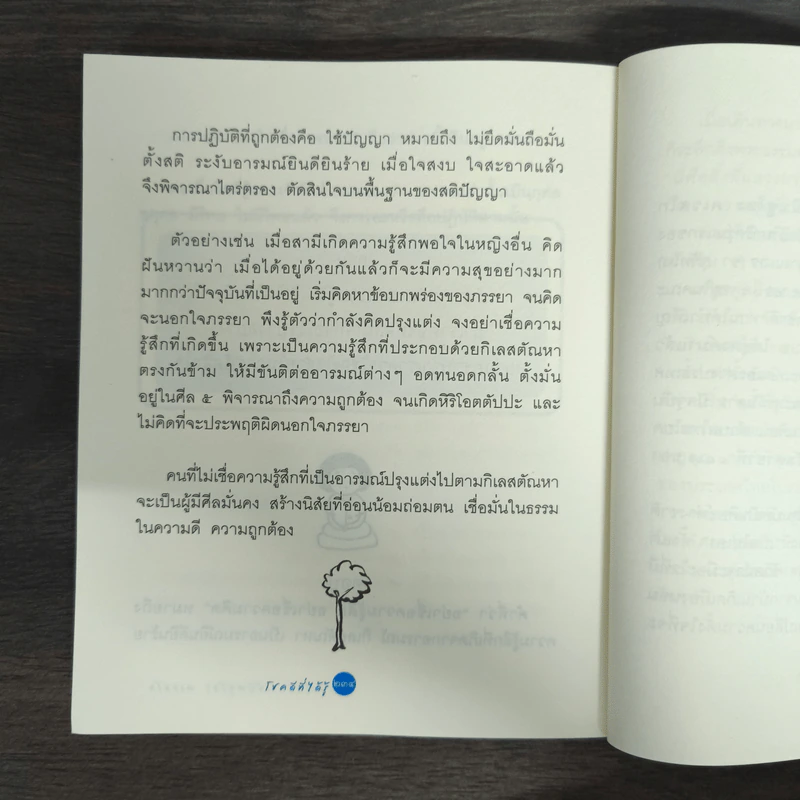 การปฏิบัติที่ถูกต้องคือ ใช้ปัญญา หมายถึง ไม่ยึดมั่นถือมั่น
ตั้งสติ ระงับอารมณ์ยินดียินร้าย เมื่อใจสงบ ใจสะอาดแล้ว
จึงพิจารณาไตร่ตรอง ตัดสินใจบนพื้นฐานของสติปัญญา
ตัวอย่างเช่น เมื่อสามีเกิดความรู้สึกพอใจในหญิงอื่น คิด
ฝันหวานว่า เมื่อได้อยู่ด้วยกันแล้วก็จะมีความสุขอย่างมาก
มากกว่าปัจจุบันที่เป็นอยู่ เริ่มคิดหาข้อบกพร่องของภรรยา จนคิด
จะนอกใจภรรยา พึงรู้ตัวว่ากำลังคิดปรุงแต่ง จงอย่าเชื่อความ
รู้สึกที่เกิดขึ้น เพราะเป็นความรู้สึกที่ประกอบด้วยกิเลสตัณหา
ตรงกันข้าม ให้มีขันติต่ออารมณ์ต่างๆ อดทนอดกลั้น ตั้งมั่น
อยู่ในศีล ๕ พิจารณาถึงความถูกต้อง จนเกิดหิริโอตตัปปะ และ
ไม่คิดที่จะประพฤติผิดนอกใจภรรยา
คนที่ไม่เชื่อความรู้สึกที่เป็นอารมณ์ปรุงแต่งไปตามกิเลสตัณหา
จะเป็นผู้มีศีลมั่นคง สร้างนิสัยที่อ่อนน้อมถ่อมตน เชื่อมั่นในธรรม
ในความดี ความถูกต้อง
โชคดีที่ได้รู้ ๒๓๔